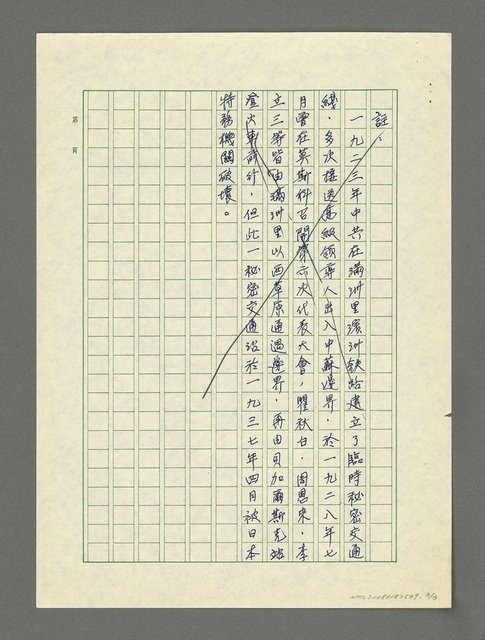 註：
一九二三年中共在滿洲里濱洲鉄路建立了臨時秘密交通
綫，多次接送高級領導人出入中蘇邊界，於一九二八年七
月曾在莫斯科召開第六次代表大會，瞿秋白、周恩來、李
立三等皆由滿洲里以西草原通過邊界，再由貝加爾斯克站
登火車前行，但此一秘密交通沿於一九三七年四月被日本
特務機關破壞。
第 頁